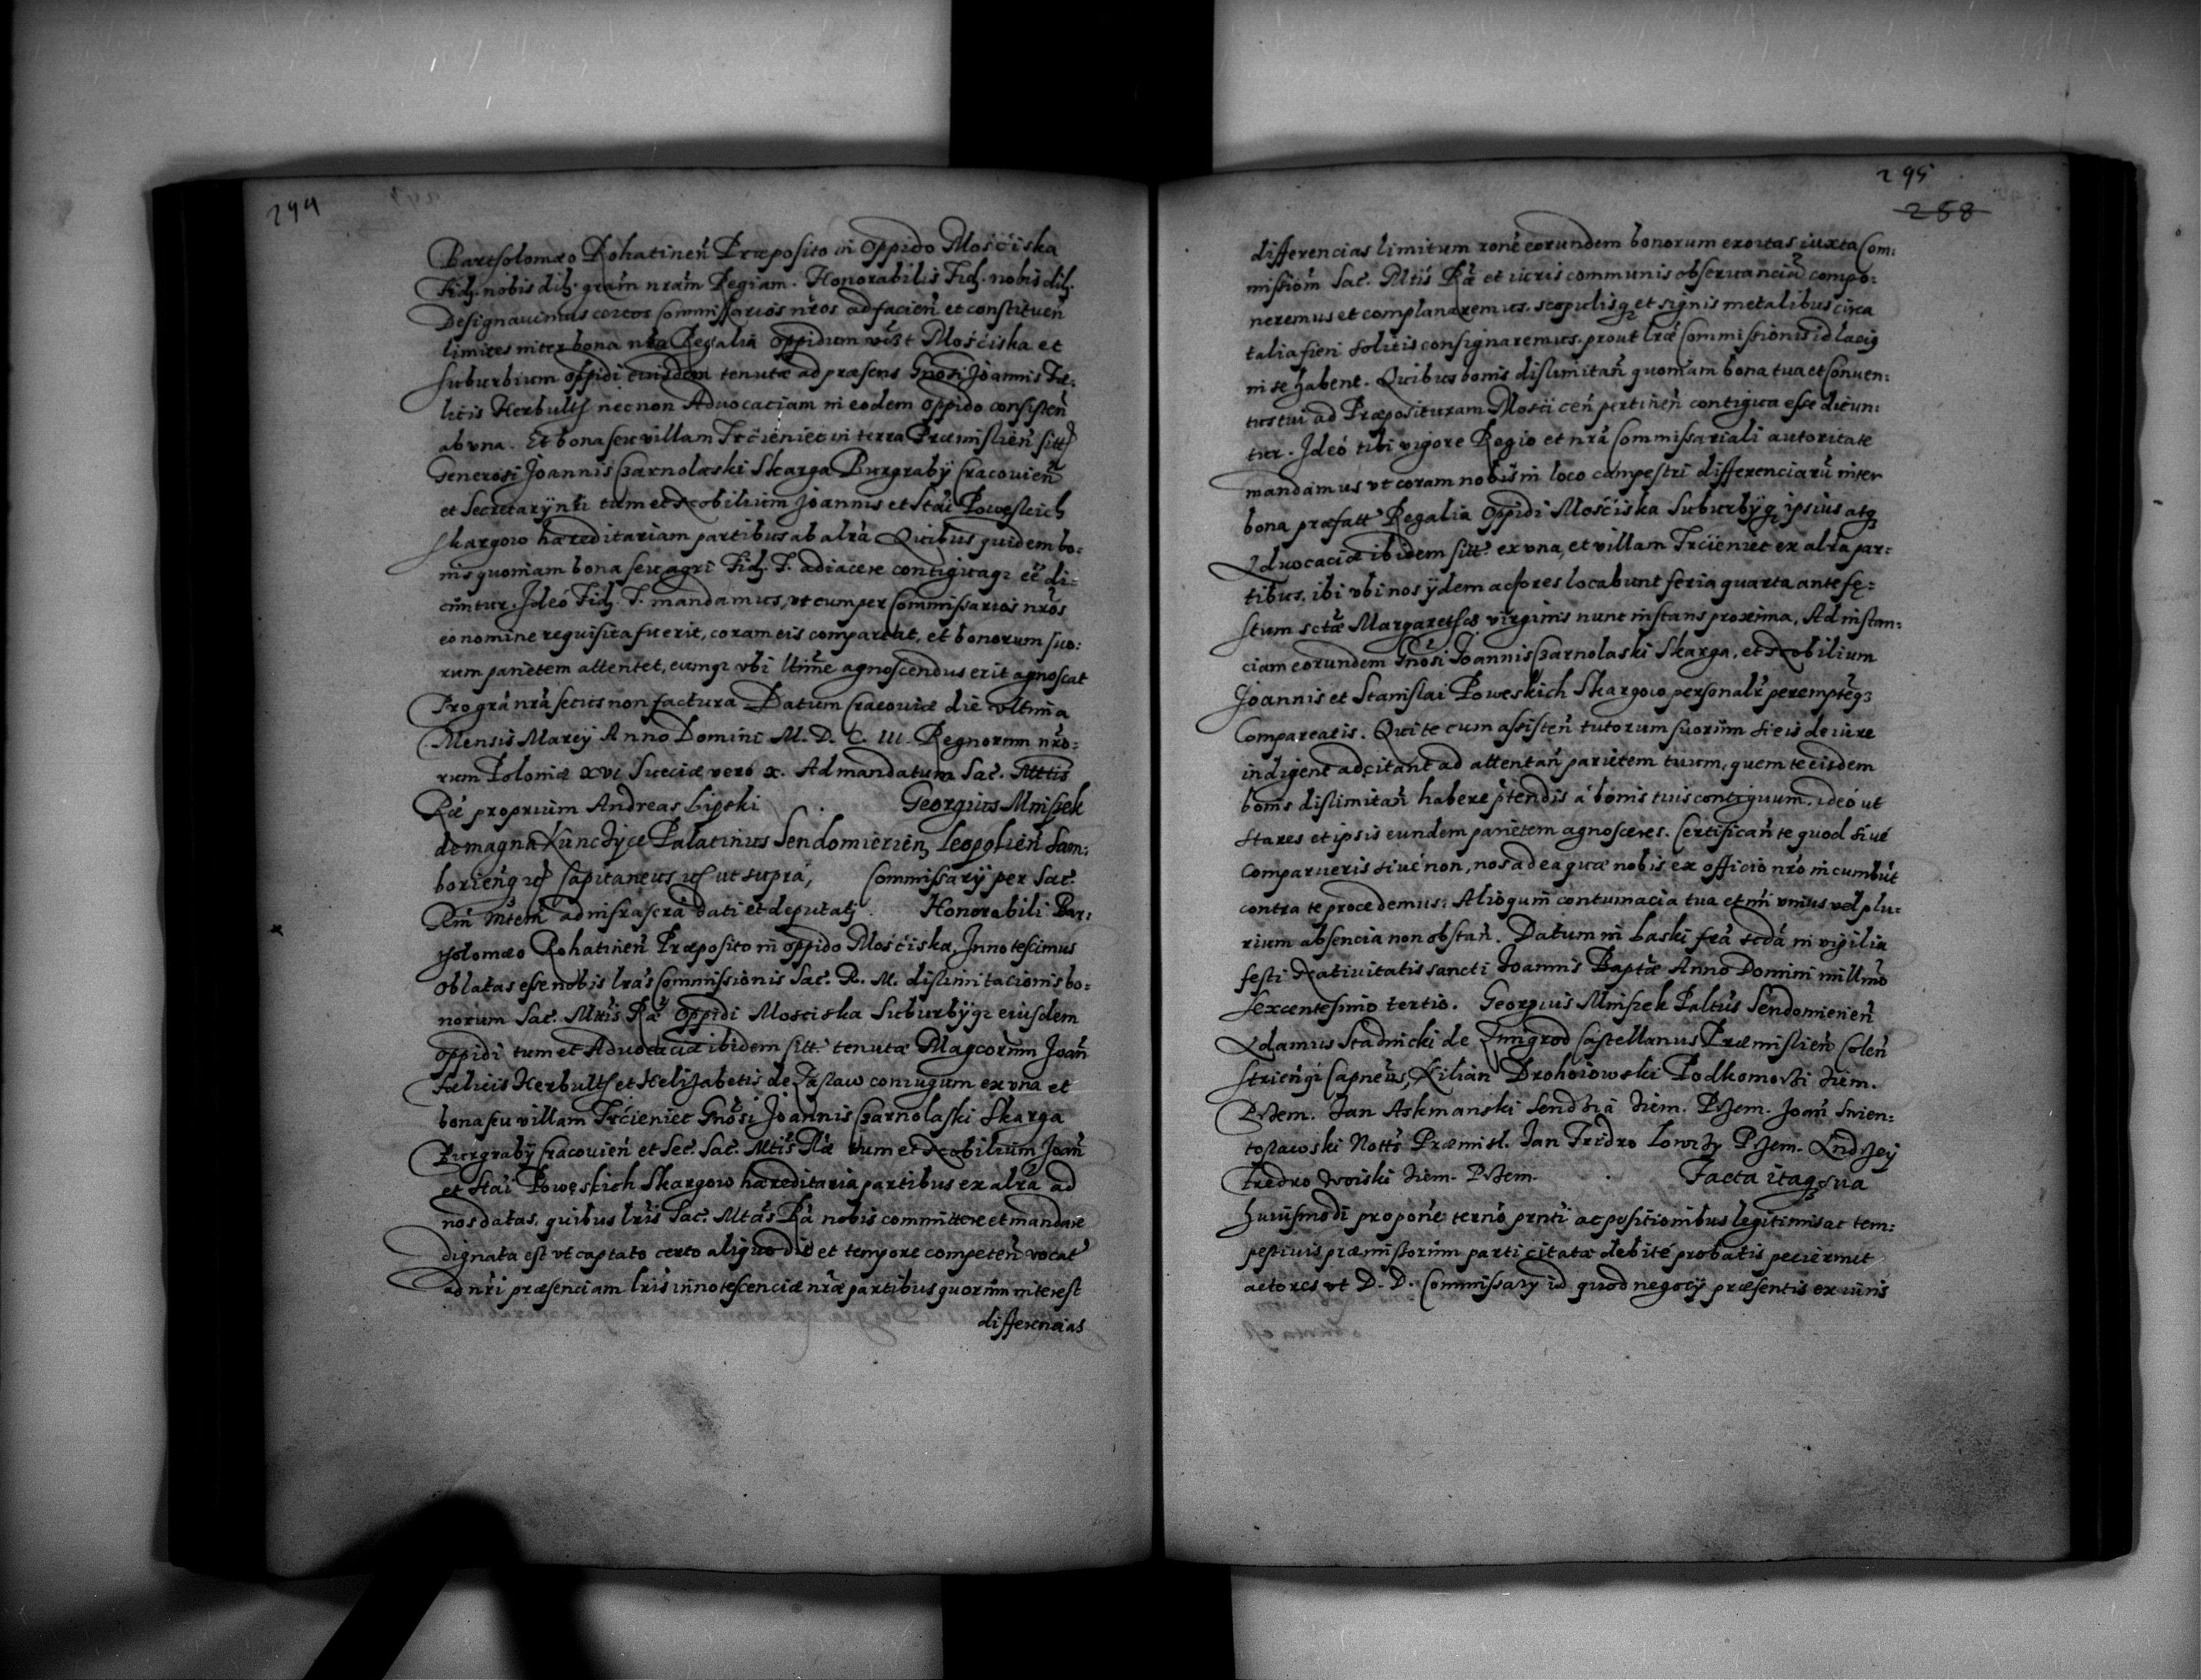 294
Bartholomæo Rohatineñ Præposito in oppido Mościska
Fidꝫ. nobis dilꝫ. gram̃ nram̃ Regiam. Honorabilis Fidꝫ. nobis dilꝫ.
Designauimus certos Commissarios nr̃os ad facień et constituen̄
limites inter bona nr̃a Regalia oppidum vꝫt Mościska et
suburbium oppidi eiusdem tenutæ ad præsens Gnosi Joannis Fæ-
licis Herbultħ necnon Aduocaciam in eodem oppido consisteñ
ab vna. Et bona seu villam Trċieniec in terra Præmislień sitt
Generosi Joannis Czarnolaski Skarga Burgrabÿ Cracouień
et Secretarÿ nr̃i tum et Nobilium Joannis et Stãi Powęskich
Skargow hæreditariam partibus ab altrã. Quibus quidem bo-
nis quoniam bona seu agri Fidꝫ. T. adiacere contiguaqꝫ ee͂ di-
cuntur. Ideo Fidꝫ. T. mandamus, vt cum per Commissarios nr̃os
eo nomine requisita fuerit, coram eis compareat, et bonorum suo-
rum parietem attentet, eumqꝫ vbi ltime agnoscendus erit agnoscat
Pro gr̃a nr̃a secus non factura Datum Cracouiæ die vltima
Mensis Marcÿ Anno Domini M. D. C. III. Regnorum nr̃o-
rum Poloniæ XVI Sueciæ vero X. Ad mandatum Sac. Mttis
Ræ proprium Andreas Lipski . Georgius Mnissek
de magna Kunczÿce Palatinus Sendomirień, Leopolień Sam-
borieńqꝫ etc Capitaneus etc ut supra, Commissarÿ per Sac.
Rm̃ Mtem̃ ad infrascra dati et deputatj. Honorabili Bar-
tholomæo Rohatineñ Præposito in oppido Mościska, Innotescimus
oblatas esse nobis lrãs Commissionis Sac. R. M. dislimitacionis bo-
norum Sac. Mtis Ræ oppidi Mosciska Suburbÿqꝫ eiusdem
oppidi tum et Aduocaciæ ibidem sitt. tenutæ Magcorum Joań
Fælicis Herbultħ et Helizabetis de Zaslaw coniugum ex vna et
bona seu villam Trċieniec Gnõsi Joannis Czarnolaski Skarga
Burgrabÿ Cracouień et Sec. Sac. Mtis Ræ tum et Nobilium Joań
et Stãi Powęskich Skargow hæreditaria partibus ex altrã ad
nos datas, quibus lrĩs Sac. Mtãs Rã nobis committere et mandare
dignata est vt captato certo aliquo die et tempore competeñ vocat
ad nr̃i præsenciam lrĩs innotescenciæ nr̃æ partibus quorum interest
differencias
295
288
differencias limitum rone eorundem bonorum exortas iuxta Com-
missiom̃ Sac. Mtis Ræ et iuris communis obseruanciã compo-
neremus et complanaremus. scopulisqꝫ et signis metalibus circa
talia fieri solitis consignaremus. prout lræ Commissionis id lacius
in se habent. Quibus bonis dislimitań quoniam bona tua et Conuen-
tus tui ad Præposituram Moscicen̄ pertineń contigua esse dicun-
tur. Ideo tibi vigore Regio et nr̃a Commissariali autoritate
mandamus vt coram nobis in loco campestri differenciarũ inter
bona præfatt Regalia oppidi Mościska Suburbÿqꝫ ipsius atqꝫ
Aduocaciæ ibidem sitt. ex vna, et villam Trċieniec ex altra par-
tibus. ibi vbi nos ÿdem actores locabunt feria quarta ante fe-
stum sctæ Margarethæ virginis nunc instans proxima, Ad instan-
ciam eorundem Gnõsi Joannis Czarnolaski Skarga, et Nobilium
Joannis et Stanislai Poweskich Skargow personalr̃ peremptẽqꝫ
Compareatis. Qui te cum assisteń tutorum suorum si eis de iure
indigent adcitant ad attentań parietem tuum, quem te eisdem
bonis dislimitań habere p̃tendis a bonis tuis contiguum, ideo ut
stares et ipsis eundem parietem agnosceres. Certificań te quod siue
comparueris siue non, nos ad ea quæ nobis ex officio nr̃o incumbũt
contra te procedemus. Alioqum̃ contumacia tua et nr̃i vnius vel plu-
rium absencia non obstań. Datum in Laski frã scdã in vigilia
festi Natiuitatis sancti Joannis Baptæ Anno Domini millmo
sexcentesimo tertio. Georgius Mnissek Paltus Sendomirień
Adamus Stadnicki de Zmigrod Castellanus Præmislień Coleń
Strieńqꝫ Capneus, Kilian Drohoiowski Podkomorzi ziem.
Przem. Jan Askmanski Sendzia ziem. Przem. Joań Swien-
toslawski Notts Præmisl. Jan Fridro Lowczÿ Przem. Andrzej
Fredro Woiski ziem. Przem. . Facta itaqꝫ sua
huiusmodi propone terno pr̃nti ac positionibus legitimis ac tem-
pestiuis præmissorum parti citatæ debite probatis pecierunt
actores vt D. D. Commissarÿ id quod negocÿ præsentis ex iuris